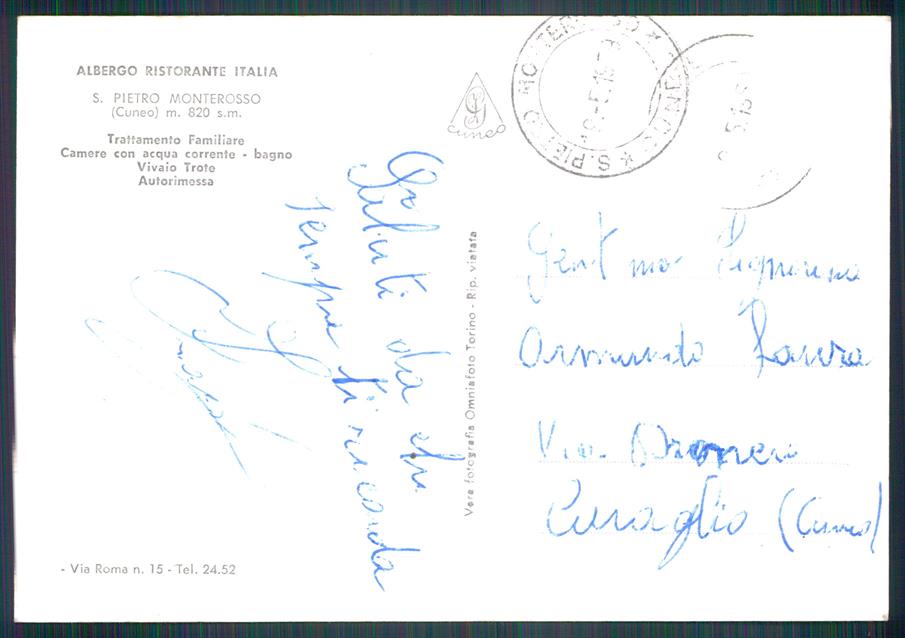 ALBERGO RISTORANTE ITALIA
S. PIETRO MONTEROSSO
(Cuneo) m. 820 s.m.
Trattamento Familiare
Camere con acqua corrente - bagno
Vivaio Trote
Autorimessa
cuneo
S. PIETRO MONTEROSSO * (CUNEO) *
Saluti da chi
sempre ti ricorda
Vera fotografia Omniafoto Torino - Rip. vietata
Gent ma Signorina
Armando Laura
Via Dronero
Caraglio (Cuneo)
- Via Roma n. 15 - Tel. 24.52